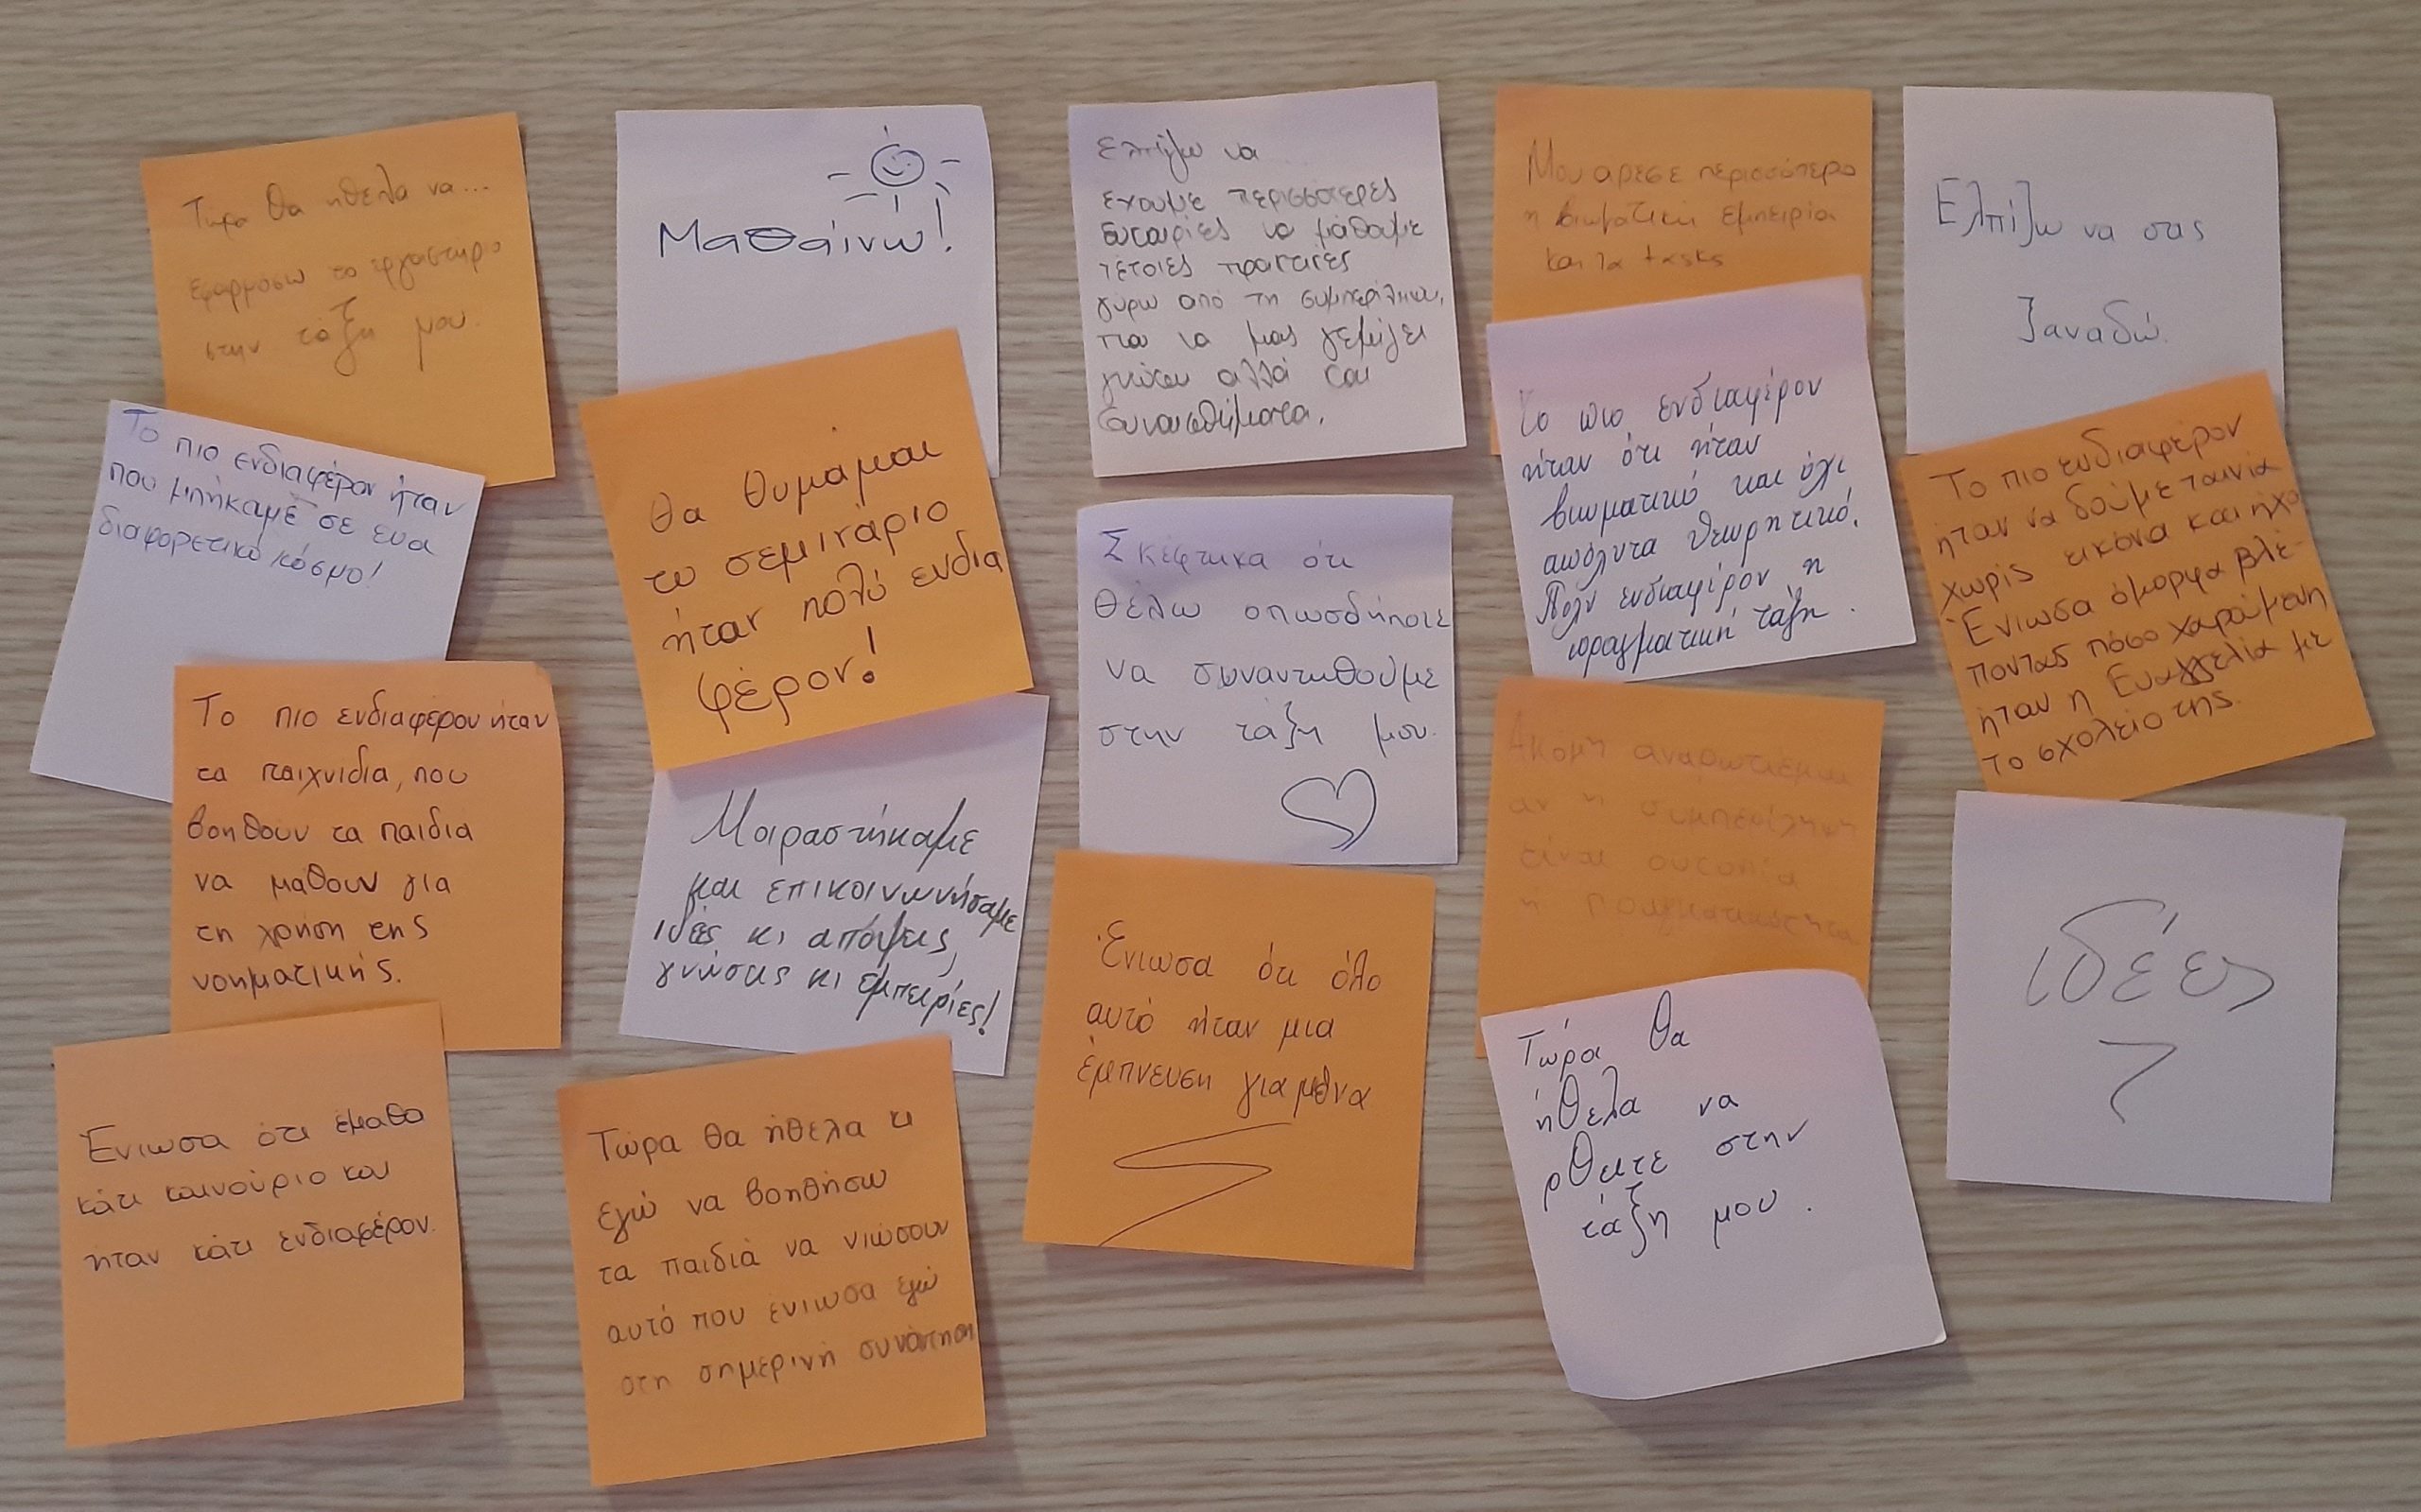 Τώρα θα ήθελα να...
εφαρμόσω το εργαστηρο
στην τάξη μου.
Το πιο ενδιαφέρον ήταν
που μπήκαμε σε ενα
διαφορετικό κόσμο!
Το πιο ενδιαφέρον ήταν
τα παιχνιδια, που
βοηθουν τα παιδια
να μαθουν για
τη χρήση της
νοηματικής.
Ένιωσα ότι έμαθα
κάτι καινούριο και
ήταν κάτι ενδιαφέρον.
Μαθαίνω!
Θα θυμάμαι
το σεμινάριο
ήταν πολύ ενδια
φέρον!
Μοιραστήκαμε
και επικοινωνήσαμε
ιδέες κι απόψεις,
γνώσεις κι εμπειρίες!
Τώρα θα ήθελα κι
εγώ να βοηθήσω
τα παιδιά να νιώσουν
αυτό που ένιωσα εγώ
στη σημερινή συνάντηση
Ελπίζω να
έχουμε περισσότερες
ευκαιρίες να μάθουμε
τέτοιες πρακτικές
γύρω από τη συμπερίληψη,
που να μας γεμίζει
γνώσεις αλλά και
συναισθήματα.
Σκέφτηκα ότι
θέλω οπωσδήποτε
να συναντηθούμε
στην τάξη μου.
Ένιωσα ότι όλο
αυτό ήταν μια
έμπνευση για μένα
Μου αρεσε περισσότερο
η βιωματική εμπειρία
και τα tasks
Το πιο ενδιαφέρον
ήταν ότι ήταν
βιωματικό και όχι
απόλυτα θεωρητικό.
Πολύ ενδιαφέρον η
πραγματική τάξη.
Ακόμη αναρωτιέμαι
αν η συμπερίληψη
είναι ουτοπία
η πραγματικότητα
Τώρα θα
ήθελα να
ρθειτε στην
τάξη μου.
Ελπίζω να σας
ξαναδώ.
Το πιο ενδιαφέρον
ήταν να δούμε ταινία
χωρίς εικόνα και ήχο
Ένιωσα όμορφα βλέ-
ποντας πόσο χαρούμενη
ήταν η Ευαγγελία με
το σχολείο της.
ιδέες